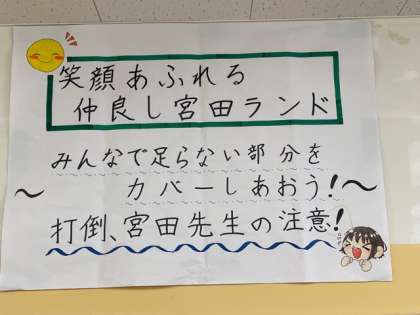 笑顔あふれる
仲良し宮田ランド
みんなで足らない部分を
～カバーしあおう!～
打倒、宮田先生の注意!